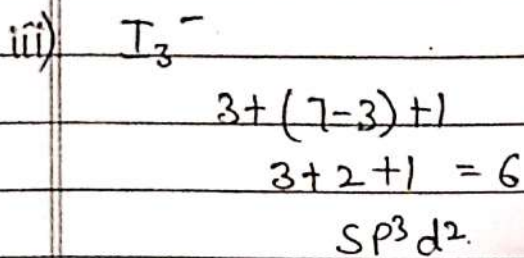 iii) I₃⁻
3+(7-3)+1
3+2+1 = 6
SP³d².